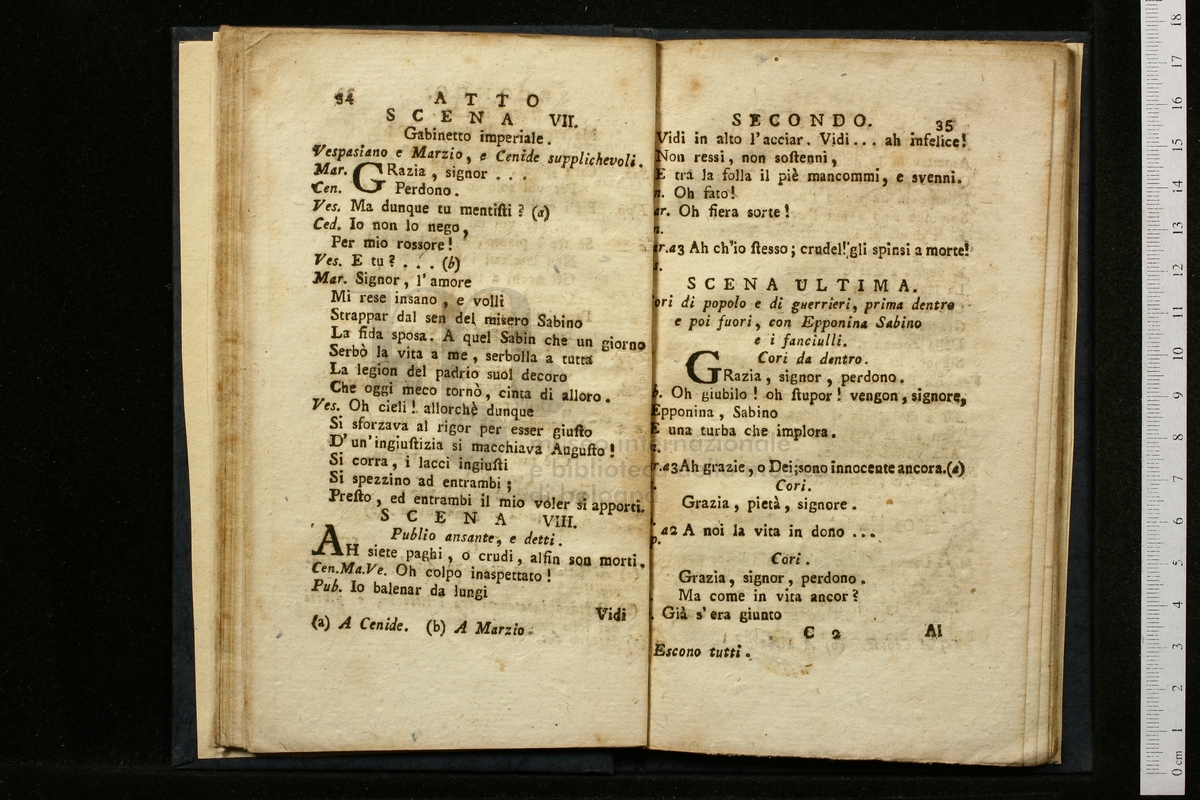 34 ATTO
SCENA VII.
Gabinetto imperiale.
Vespasiano e Marzio, e Cenide supplichevoli.
Mar. GRazia, signor . . .
Cen. Perdono.
Ves. Ma dunque tu mentiſti? (a)
Ced. Io non lo nego,
Per mio rossore!
Ves. E tu? . . . (b)
Mar. Signor, l'amore
Mi rese insano, e volli
Strappar dal sen del misero Sabino
La fida sposa. A quel Sabin che un giorno
Serbò la vita a me, serbolla a tutta
La legion del padrio suol decoro
Che oggi meco tornò, cinta di alloro.
Ves. Oh cieli! allorchè dunque
Si sforzava al rigor per esser giuſto
D'un'ingiuſtizia si macchiava Auguſto!
Si corra, i lacci ingiuſti
Si spezzino ad entrambi;
Preſto, ed entrambi il mio voler si apporti.
SCENA VIII.
Publio ansante, e detti.
AH siete paghi, o crudi, alfin son morti.
Cen.Ma.Ve. Oh colpo inaspettato!
Pub. Io balenar da lungi
Vidi
(a) A Cenide. (b) A Marzio.
SECONDO. 35
Vidi in alto l'acciar. Vidi... ah infelice!
Non ressi, non soſtenni,
E tra la folla il piè mancommi, e svenni.
n. Oh fato!
ar. Oh fiera sorte!
n.
ar.a3 Ah ch'io ſtesso; crudel! gli spinsi a morte!
s.
SCENA ULTIMA.
ori di popolo e di guerrieri, prima dentro
e poi fuori, con Epponina Sabino
e i fanciulli.
Cori da dentro.
GRazia, signor, perdono.
b. Oh giubilo! oh ſtupor! vengon, signore,
Epponina, Sabino
E una turba che implora.
n.
r.a3 Ah grazie, o Dei; sono innocente ancora.(a)
Cori.
Grazia, pietà, signore.
a2 A noi la vita in dono ...
p.
Cori.
Grazia, signor, perdono.
Ma come in vita ancor?
. Già s'era giunto
C 2 Al
Escono tutti.
museo internazionale
e biblioteca della musica
di bologna